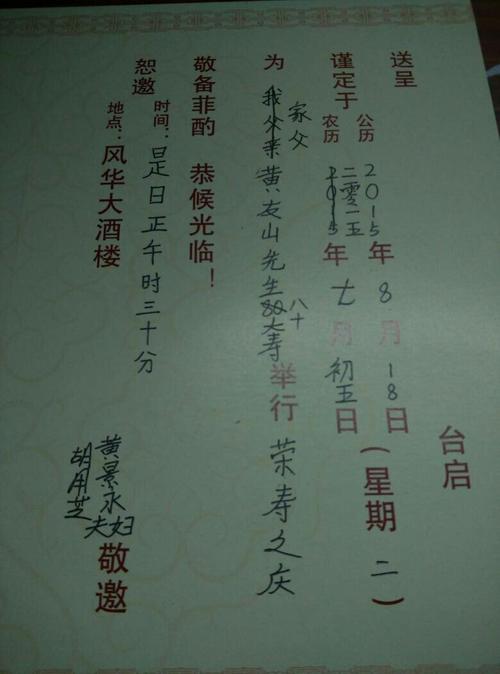 送呈 台启
谨定于
公历 2015年8月18日（星期二）
农历 二零一五 2015年七月初五日
为 我父亲 家父 黄友山先生 80 八十 大寿 举行 荣寿之庆
敬备菲酌 恭候光临！
恕邀
时间：是日正午时三十分
地点：风华大酒楼
黄景永
胡用芝
夫妇 敬邀